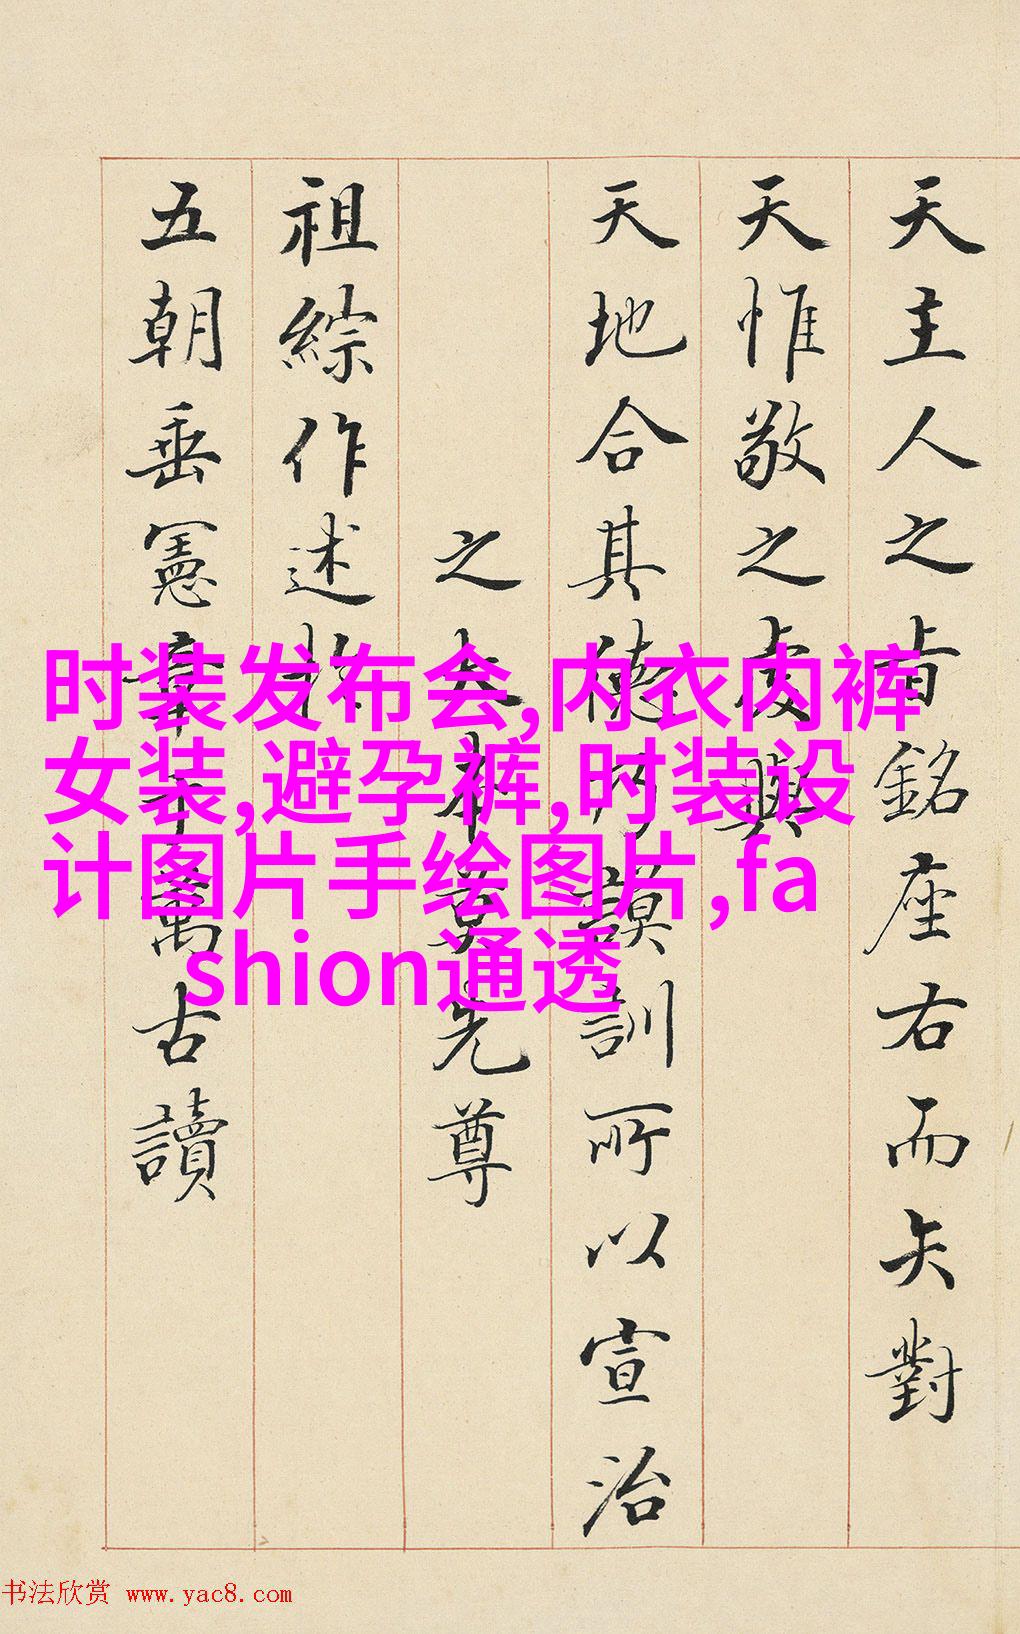 天主人之旨銘座右而矢對
天惟敬之虔與
天地合其德謨訓所以宣治
之大本莫先尊
祖綜作述
五朝垂憲章千萬古讀
时装发布会,内衣内裤
女装,避孕裤,时装设
计图片手绘图片,fa
shion通透
书法欣赏 www.yac8.com